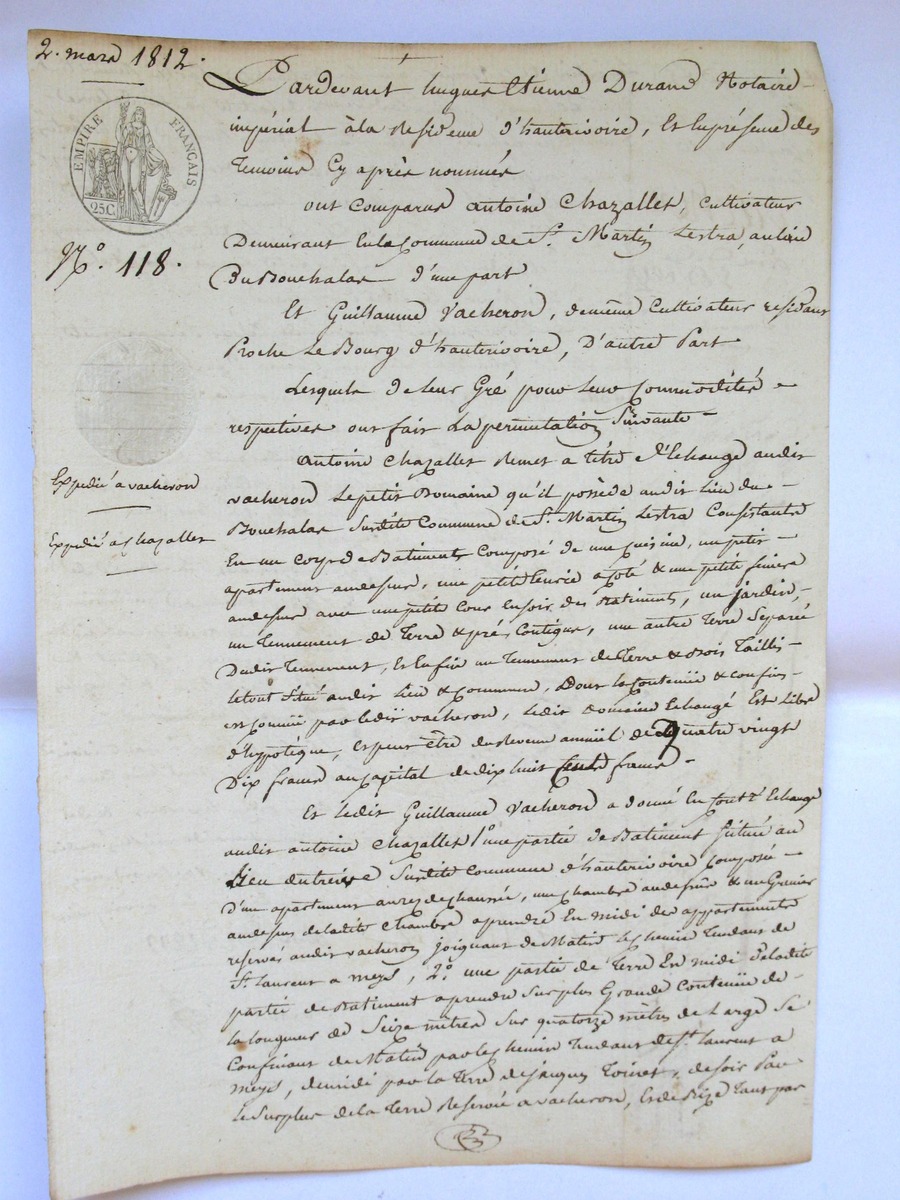 2. mars 1812.
EMPIRE FRANÇAIS
25C
N.° 118.
Expédié a vacheron
Expédié a Chazallet
Pardevant hugues Etienne Durand Notaire
impérial à la Residence d'hauterivoire, Et En présence des
Temoins Cy après nommés
ont Comparus antoine Chazallet, Cultivateur
Demeurant En la Commune de S.t Martin Lestra, au lieu
Du Bouchalas d'une part
Et Guillaume Vacheron, de même Cultivateur residant
Proche Le Bourg d'hauterivoire, D'autre Part
Lesquels de leur Gré pour leurs Commodités
respectives ont fait La permutation Suivante
Antoine Chazallet Remet a titre d'Echange audit
vacheron Le petit Domaine qu'il possède audit Lieu du
Bouchalas Susdite Commune de S.t Martin Lestra Consistante
En un Corps de Batiments Composé de une Cuisine, un petit
apartement au dessus, une petite Ecurie a Coté & une petite feniere
au dessus avec une petite Cour En soir des Batiments, un jardin,
un Tennement de Terre & prés Contigus, une autre Terre Separée
Dudit Tennement, Et Enfin un Tennement de Terre & Bois Taillis
le tout Situé audit Lieu & Commune, Dont la Contenüe & confins
est Connüe par ledit vacheron, ledit Domaine Echangé Est Libre
d'hypotèque, et peut être du Revenu annüel de Quatre vingt
Dix francs au Capital de dix huit Cents francs
Et ledit Guillaume Vacheron a donné En Contr'Echange
audit antoine Chazallet 1.° une partie de Batiment Située au
Lieu Susdite Commune d'hauterivoire Composée
D'un apartement au rez de chaussée, une chambre au dessus & un Grenier
au dessus de ladite Chambre a prendre En midi des appartements
reservés audit vacheron joignant de Matin le Chemin Tendant de
S.t Laurent a Meys, 2.° une partie de Terre En midi de ladite
partie de Batiment a prendre Sur plus Grande Contenüe de
la longueur de Seize mètres Sur quatorze mètres de Large Se
Confinant de Matin par le Chemin Tendant de S.t laurent a
meys, de midi par la Terre de jacques, de soir Par
le Surplus de la Terre Reservée a vacheron, Et de Bize Tant par